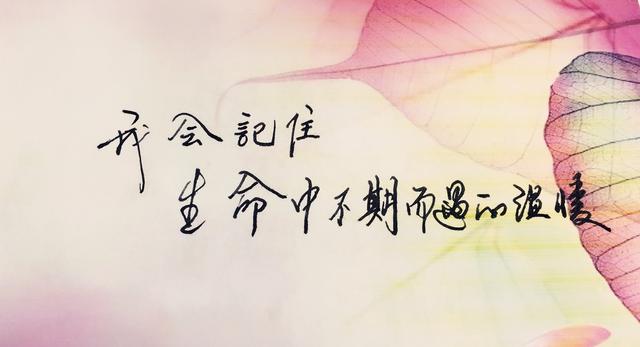 我会記住
生命中不期而遇的温暖